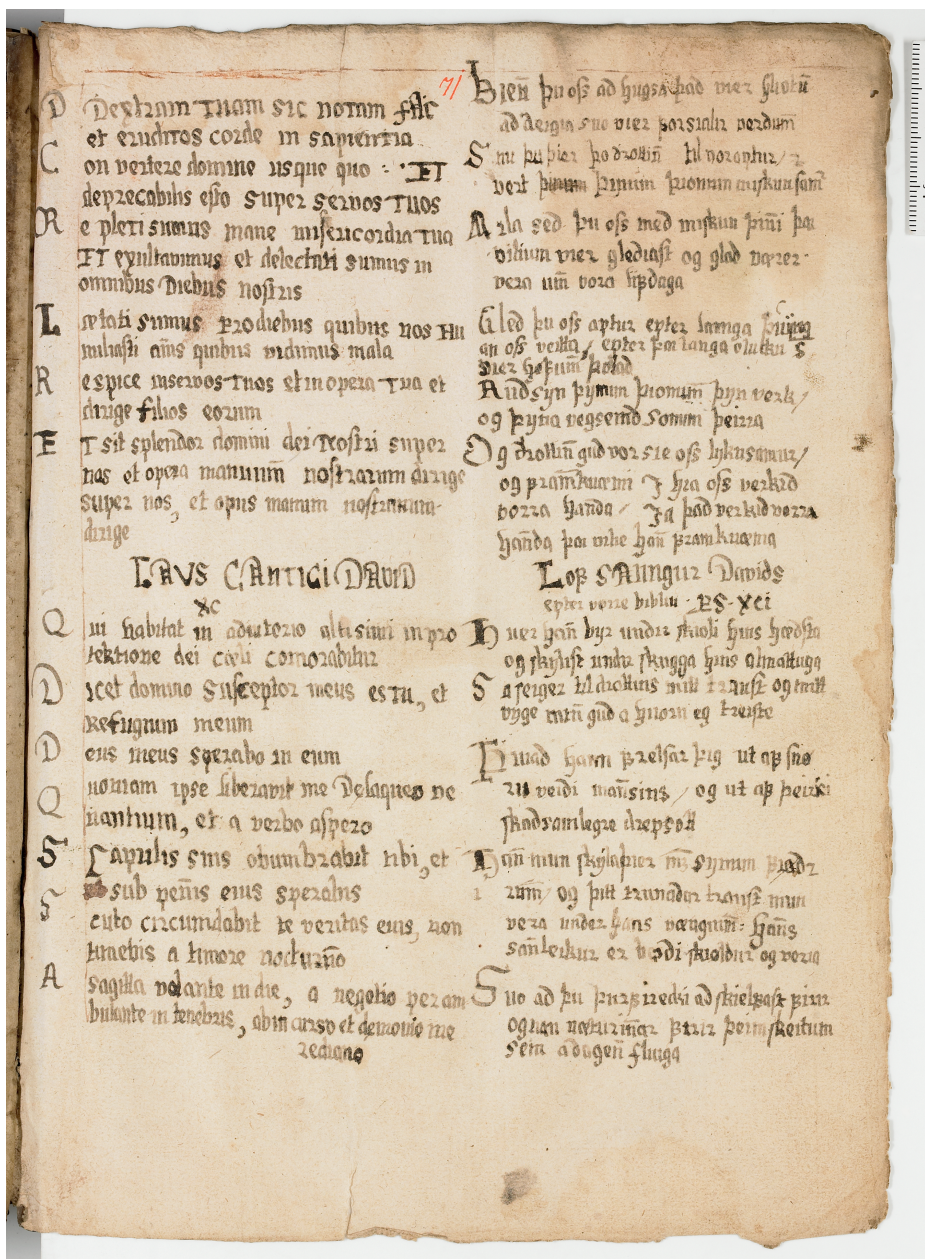 71
D Dextram tuam sic notam fac
et eruditos corde in sapientia
C on vertere domine usque quo : ET
deprecabilis esto super servos tuos
R e pleti sumus mane misericordia tua
ET exultavimus et delectati sumus in
omnibus Diebus nostris
L ætati sumus prodiebus quibus nos Hu
miliasti añis quibus vidimus mala
R espice inservos tuos et inopera tua et
dirige filios eorum
E T sit splendor domini dei nostri super
nos et opera manuum nostrarum dirige
super nos, et opus manum nostrarum
dirige
LAVS CANTICI DAVID
XC
Q ui habitat in adiutorio altisimi inpro
tektione dei cœli comorabitur
D icet domino Susceptor meus es tu, et
Refugium meum
D eus meus sperabo in eum
Q uoniam ipse liberavit me Delaqueo ve
nantium, et a verbo aspero
S Capulis suis obumbrabit tibi, et
sub pen̄is eius sperabis
S cuto circumdabit te veritas eius, non
timebis a timore nocturno
A sagitta volante indie, a negotio peram
bulante in tenebris, abin curso et demonio me
ridiano
Kien þu oss ad hugsa þad vier hliotū
ad deyia suo vier forsialir verdum̄
S nu þu þier þo drottin̄ til vor aptur /
vert þinum þionum miskunsam̄
A rla sed þu oss med miskun þin̄i þa
vilium vier glediast og glad værer
vera um̄ vora lifdaga
G led þu oss aptur epter lainga
an oss veilla, epter þa langa olucku s
vier hofum̄ þolad
A udsyn þynum þionum̄ þyn verk /
og þyna vegsemd Sonum þeirra
O g drottin̄ gud vor sie oss lyknsamur /
og fram̄kuæmi I hia oss verkid
vorra handa / Ja þad verkid vorra
han̄da þa vilie han̄ framkuæma
Lof SAungur Davids
epter vorre bibliu PS XCI
H uer han̄ byr undir skioli hins hædsta
og skylist undir skugga hins almattuga
S a seiger til drottins mitt traust og mitt
vyge min̄ gud a huorn eg treiste
H uad hann frelsar þig ut af sno
ru veidi man̄sins / og ut af þeirri
skadsamlegre drepsott
H an̄ mun skyla þier m̄; synum fiadr
rum̄ / og þitt trunadar traust mun
vera under hans vængium̄: han̄s
san̄leikur er bædi skioldur og veria
S uo ad þu þurfir ecki ad skielfast firir
ognan næturin̄ar firir þeim skeitum
sem a dagen̄ fliuga